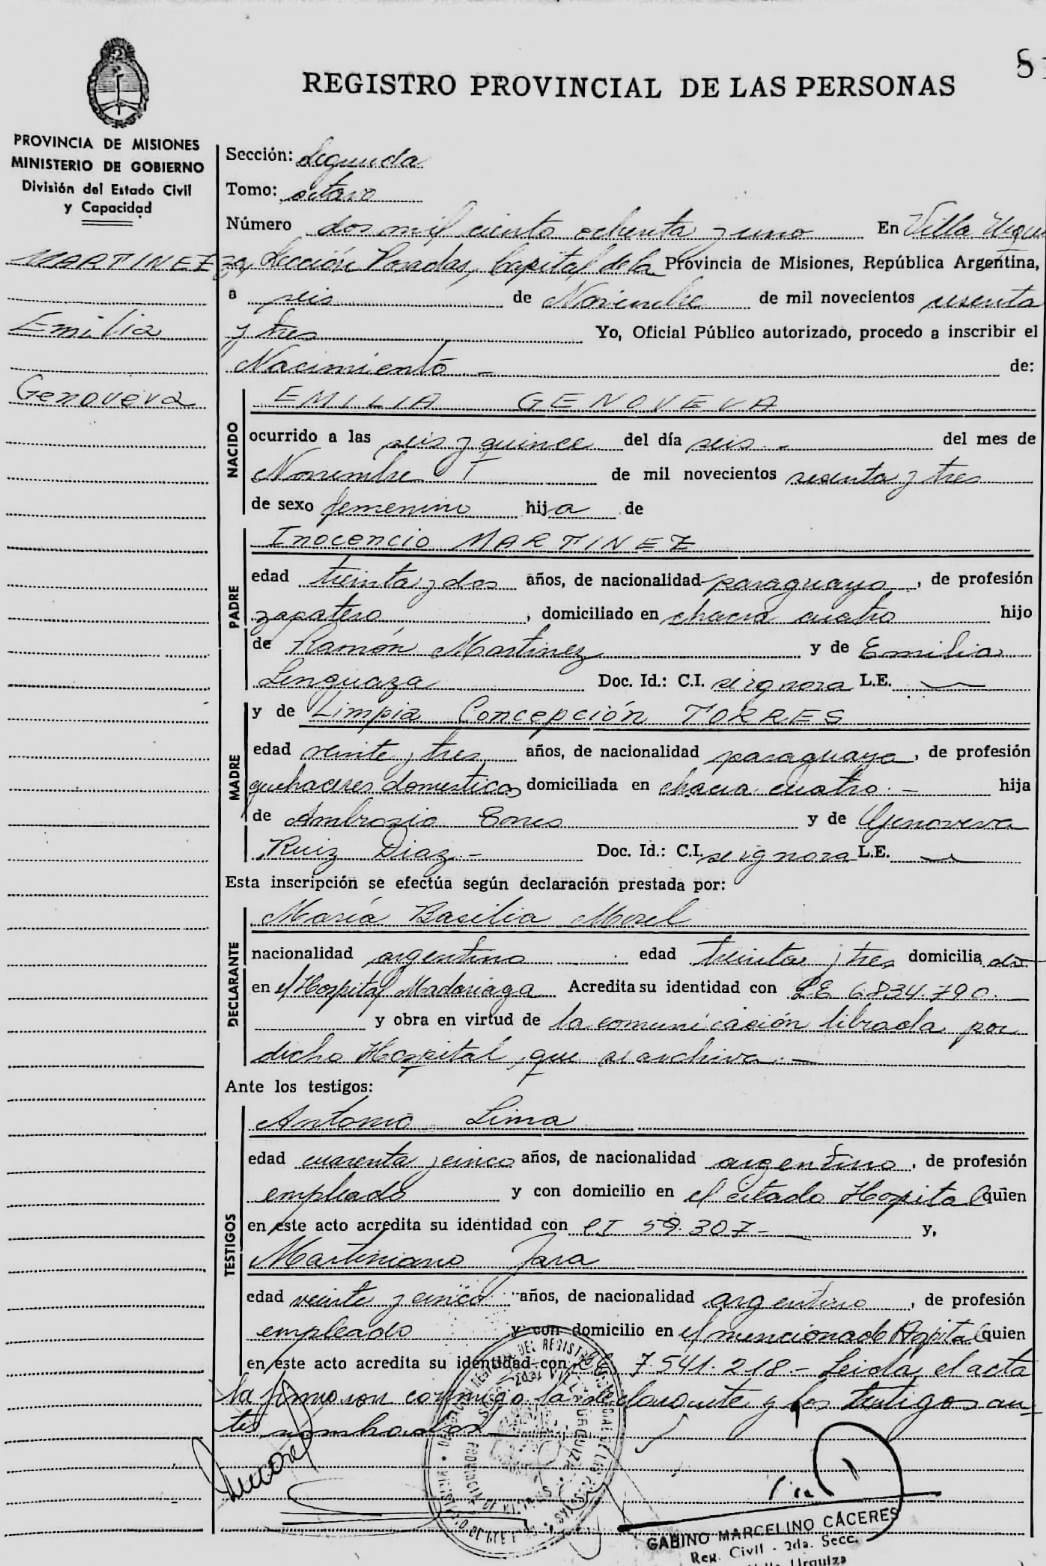 REGISTRO PROVINCIAL DE LAS PERSONAS
PROVINCIA DE MISIONES
MINISTERIO DE GOBIERNO
División del Estado Civil
y Capacidad
MARTINEZ
Emilia
Genoveva
Sección: Segunda
Tomo: octavo
Número dos mil ciento ochenta y uno En Villa Urqui
za, Sección Posadas, Capital de la Provincia de Misiones, República Argentina,
a seis de Noviembre de mil novecientos sesenta
y tres Yo, Oficial Público autorizado, procedo a inscribir el
Nacimiento - de:
NACIDO
EMILIA GENOVEVA
ocurrido a las seis y quince del día seis - del mes de
Noviembre de mil novecientos sesenta y tres
de sexo femenino hija de
PADRE
Inocencio MARTINEZ
edad treinta y dos años, de nacionalidad paraguayo, de profesión
zapatero, domiciliado en chacra cuatro hijo
de Ramón Martinez y de Emilia
Lenguaza Doc. Id.: C.I. se ignora L.E. —
MADRE
y de Limpia Concepción TORRES
edad veinte y tres años, de nacionalidad paraguaya, de profesión
quehaceres domesticos domiciliada en chacra cuatro. - hija
de Ambrosio Torres y de Genoveva
Ruiz Diaz - Doc. Id.: C.I. se ignora L.E. —
Esta inscripción se efectúa según declaración prestada por:
DECLARANTE
María Basilia Morel
nacionalidad argentina edad treinta y tres domicilia da
en el Hospital Madariaga Acredita su identidad con LE 6.834.790.
y obra en virtud de la comunicación librada por
dicho Hospital, que se archiva. -
Ante los testigos:
TESTIGOS
Antonio Lima
edad cuarenta y cinco años, de nacionalidad argentino, de profesión
empleado y con domicilio en el citado Hospital quien
en este acto acredita su identidad con CI 59.307- y,
Martiniano Jara
edad veinte y cinco años, de nacionalidad argentino, de profesión
empleado y con domicilio en el mencionado Hospital quien
en este acto acredita su identidad con 7.541.218- Leida el acta
la firmaron conmigo la declarante y los testigos an-
tes nombrados
GABINO MARCELINO CÁCERES
Reg. Civil - 2da. Secc.
Villa Urquiza